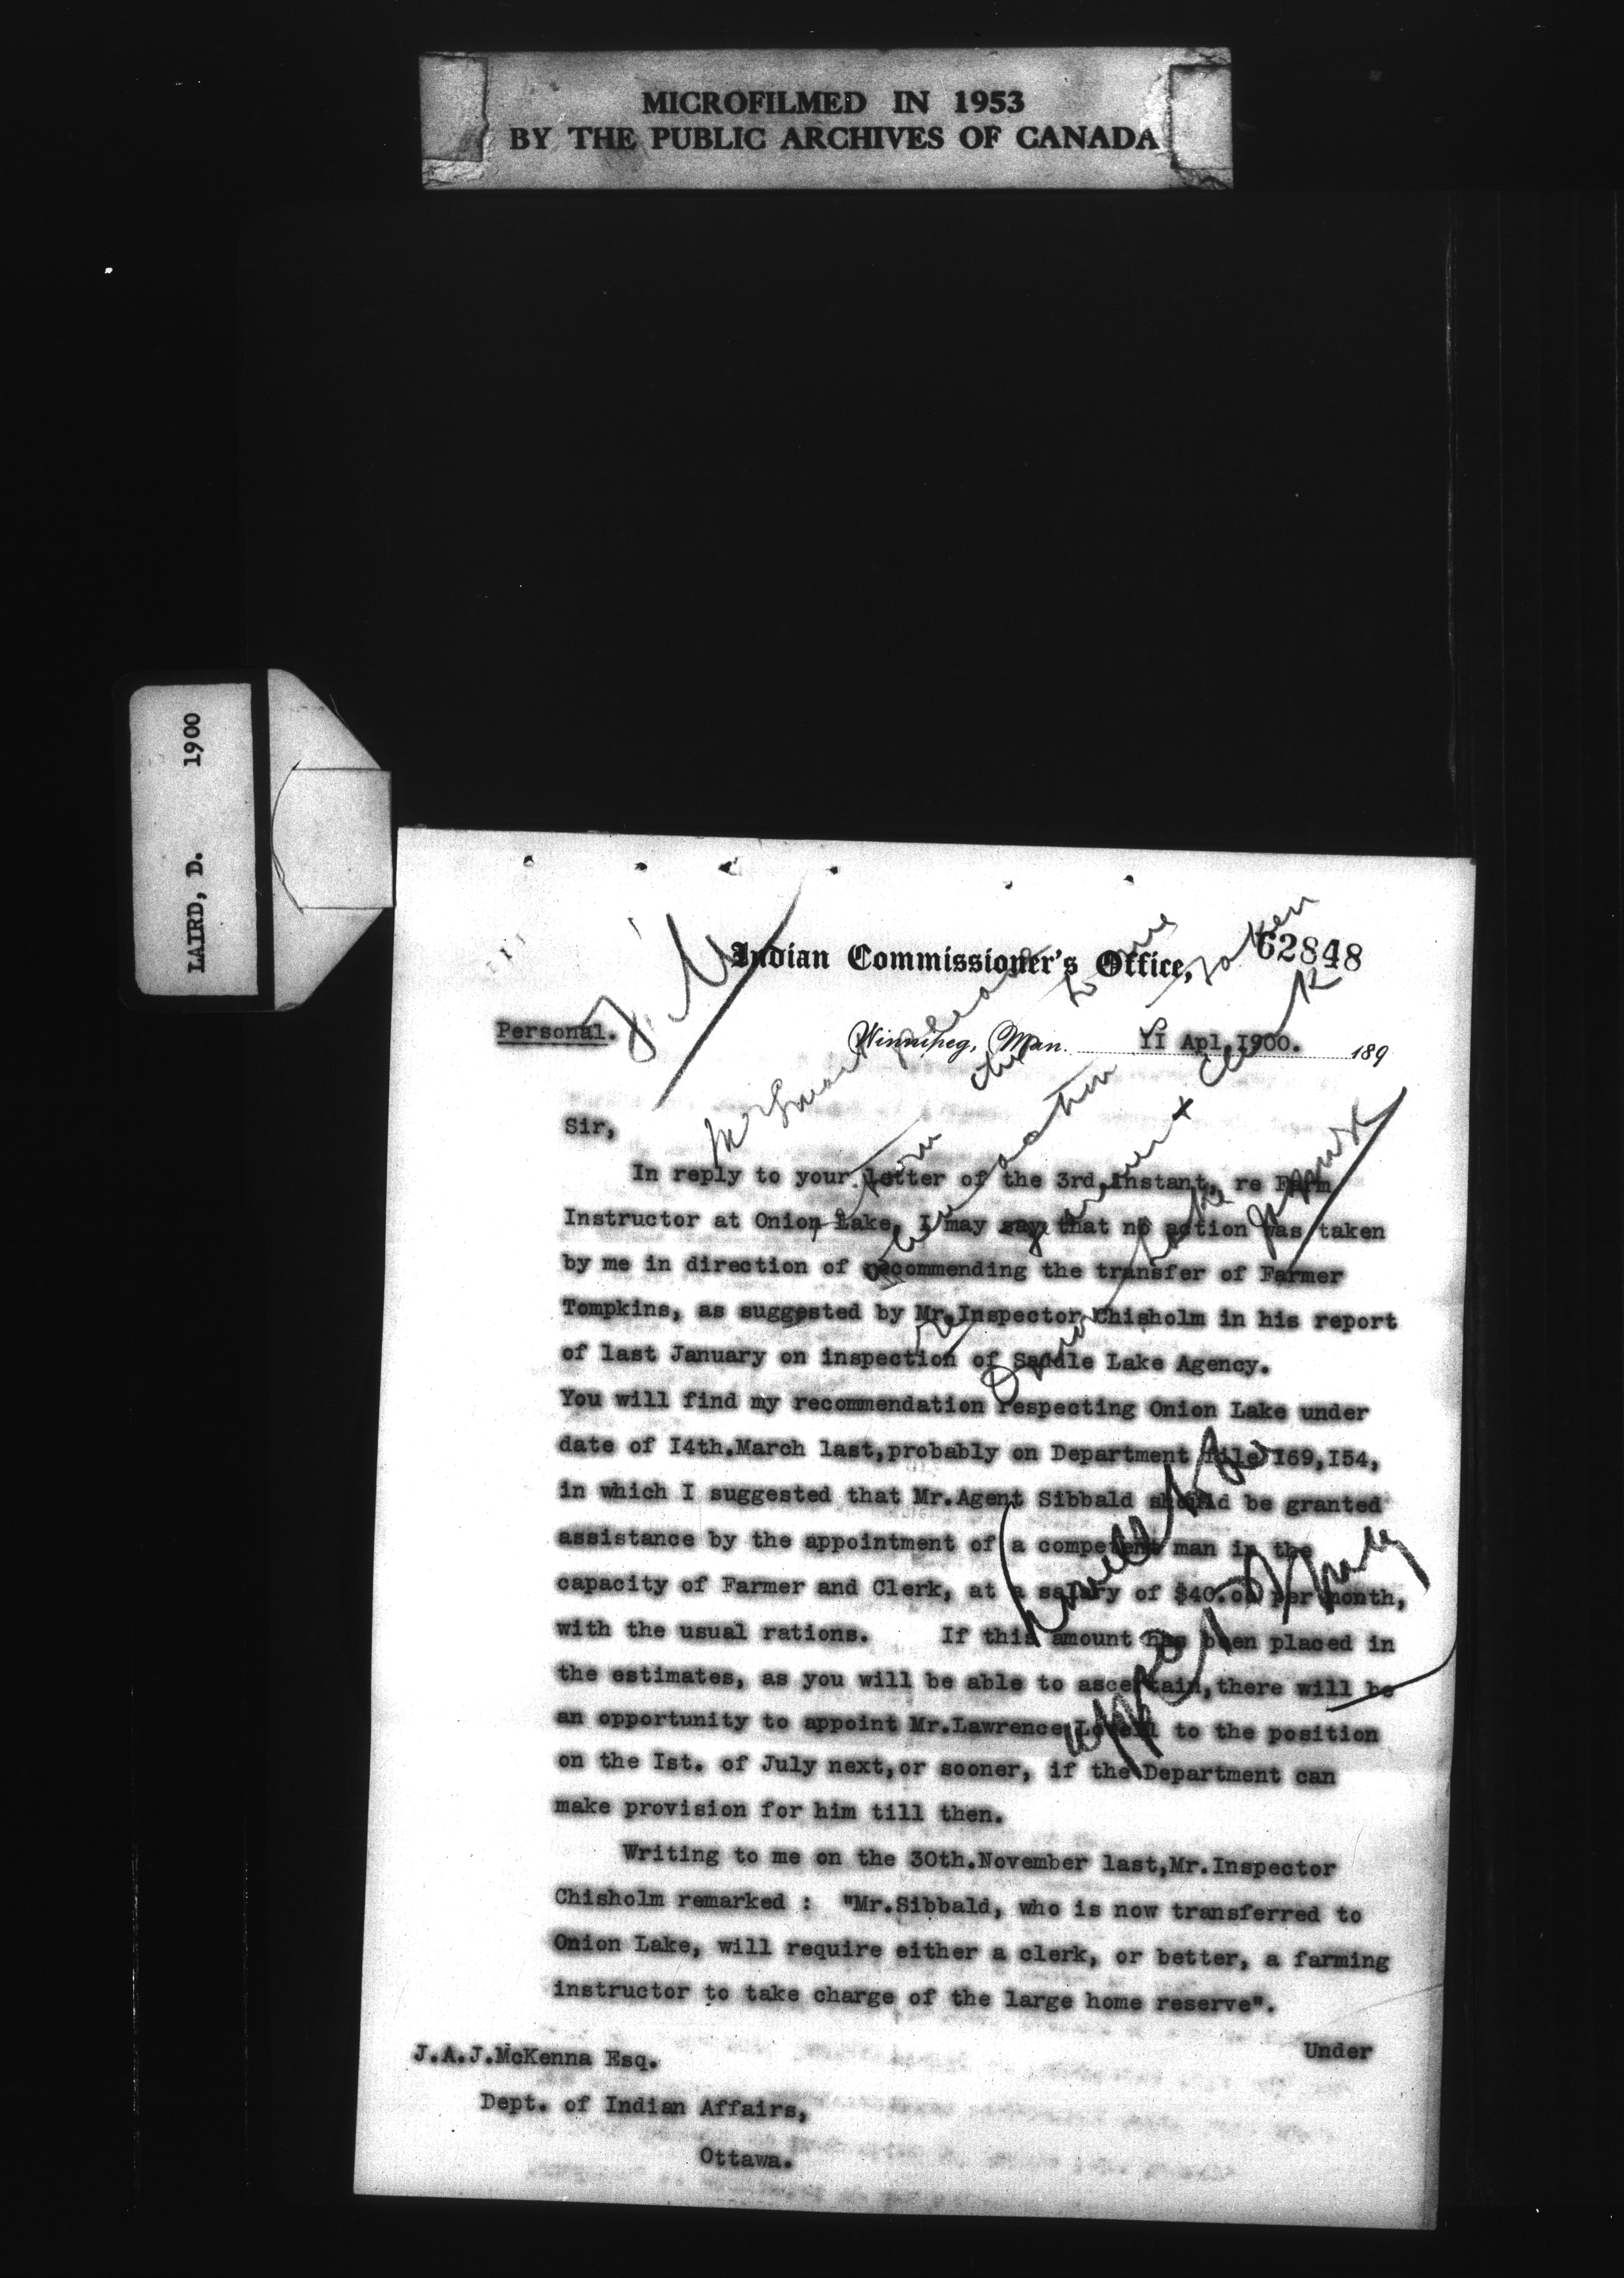 MICROFILMED IN 1953
BY THE PUBLIC ARCHIVES OF CANADA
LAIRD, D. 1900
Indian Commissioner's Office,
62848
Personal.
Winnipeg, Man. II Apl. I900. 189
Sir,
In reply to your letter of the 3rd.Instant, re Farm
Instructor at Onion Lake, I may say that no action was taken
by me in direction of recommending the transfer of Farmer
Tompkins, as suggested by Mr.Inspector Chisholm in his report
of last January on inspection of Saddle Lake Agency.
You will find my recommendation respecting Onion Lake under
date of I4th.March last,probably on Department file I69,I54,
in which I suggested that Mr.Agent Sibbald should be granted
assistance by the appointment of a competent man in the
capacity of Farmer and Clerk, at a salary of $40.00 per month,
with the usual rations. If this amount has been placed in
the estimates, as you will be able to ascertain,there will be
an opportunity to appoint Mr.Lawrence Lovell to the position
on the Ist. of July next,or sooner, if the Department can
make provision for him till then.
Writing to me on the 30th.November last,Mr.Inspector
Chisholm remarked : "Mr.Sibbald, who is now transferred to
Onion Lake, will require either a clerk, or better, a farming
instructor to take charge of the large home reserve".
Under
J.A.J.McKenna Esq.
Dept. of Indian Affairs,
Ottawa.
Mr Smart please
action taken
re farmer & Clerk
Onion Lake